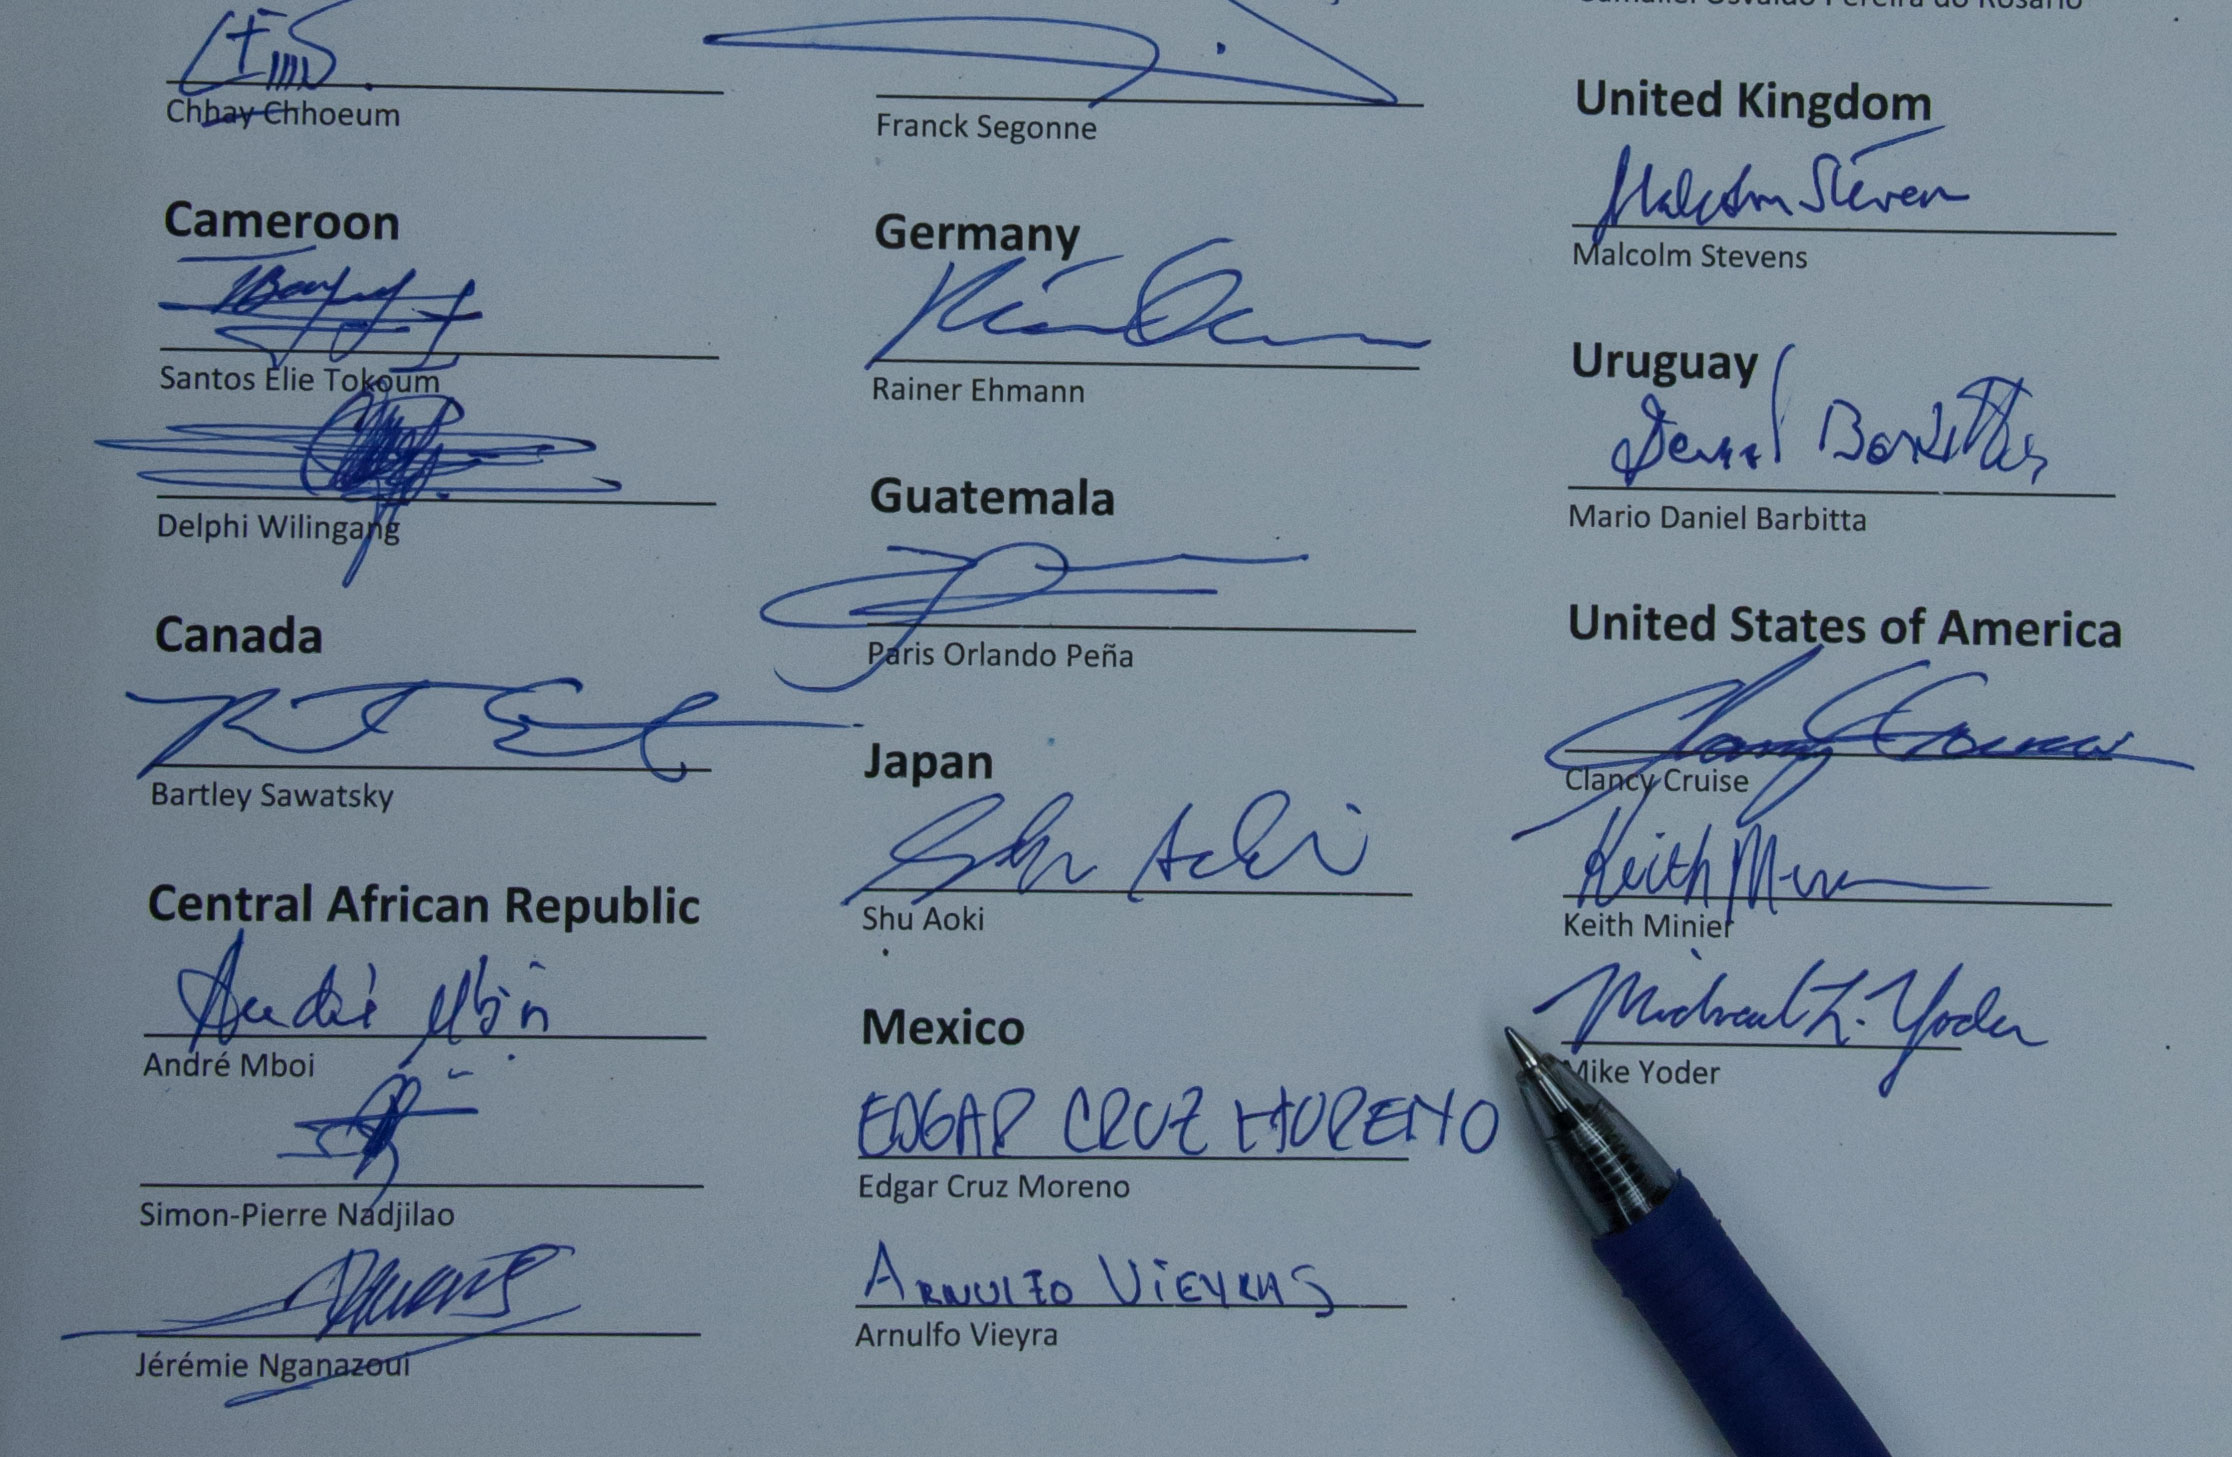 Chhay Chhoeum
Cameroon
Santos Elie Tokoum
Delphi Wilingang
Canada
Bartley Sawatsky
Central African Republic
André Mboi
André Mboi
Simon-Pierre Nadjilao
Jérémie Nganazoui
Franck Segonne
Germany
Rainer Ehmann
Guatemala
Paris Orlando Peña
Japan
Shu Aoki
Shu Aoki
Mexico
EDGAR CRUZ MORENO
Edgar Cruz Moreno
ARNULFO VIEYRA S
Arnulfo Vieyra
United Kingdom
Malcolm Steven
Malcolm Stevens
Uruguay
Daniel Barbitta
Mario Daniel Barbitta
United States of America
Clancy Cruise
Clancy Cruise
Keith
Keith Minier
Michael L. Yoder
Mike Yoder